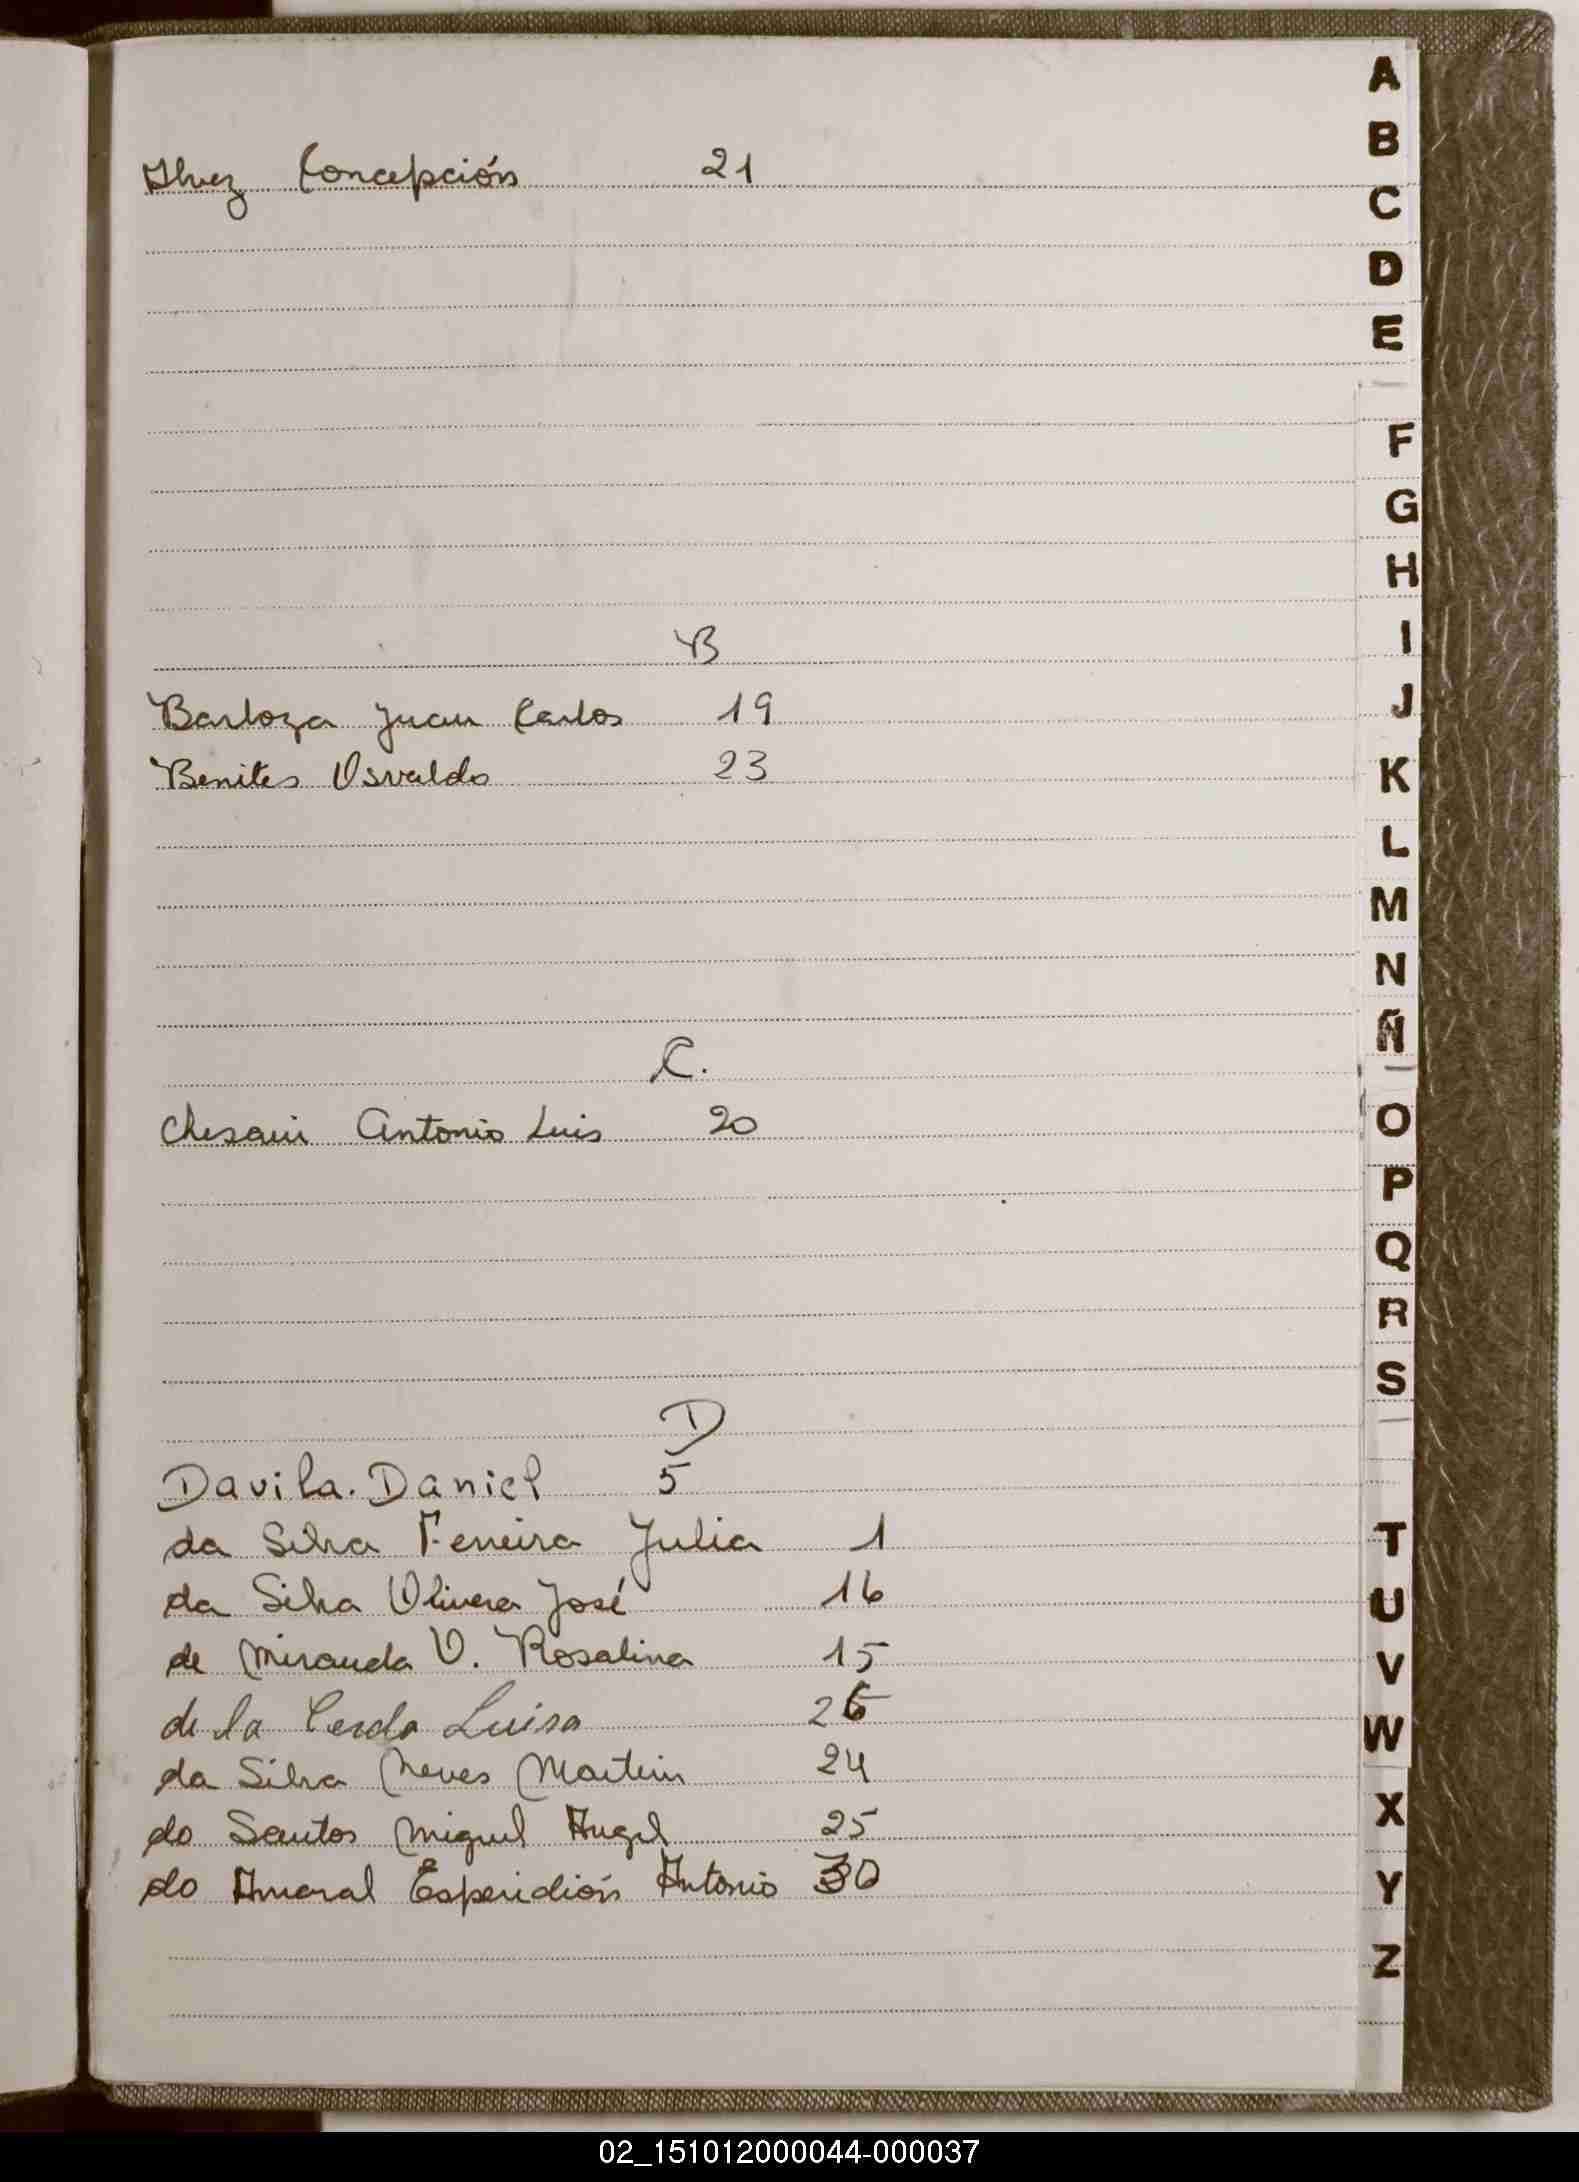 Alvez Concepción 21
B
Barboza Juan Carlos 19
Benites Osvaldo 23
C.
Antonio Luis 20
D
Davila. Daniel 5
da Silva Ferreira Julia 1
da Silva Olivera José 16
de Miranda O. Rosalina 15
de la Cerda Luisa 26
da Silva Neves Martin 24
do Santos Miguel Angel 25
do Amaral Esperidión Antonio 30
A
B
C
D
E
F
G
H
I
J
K
L
M
N
Ñ
O
P
Q
R
S
T
U
V
W
X
Y
Z
02_151012000044-000037